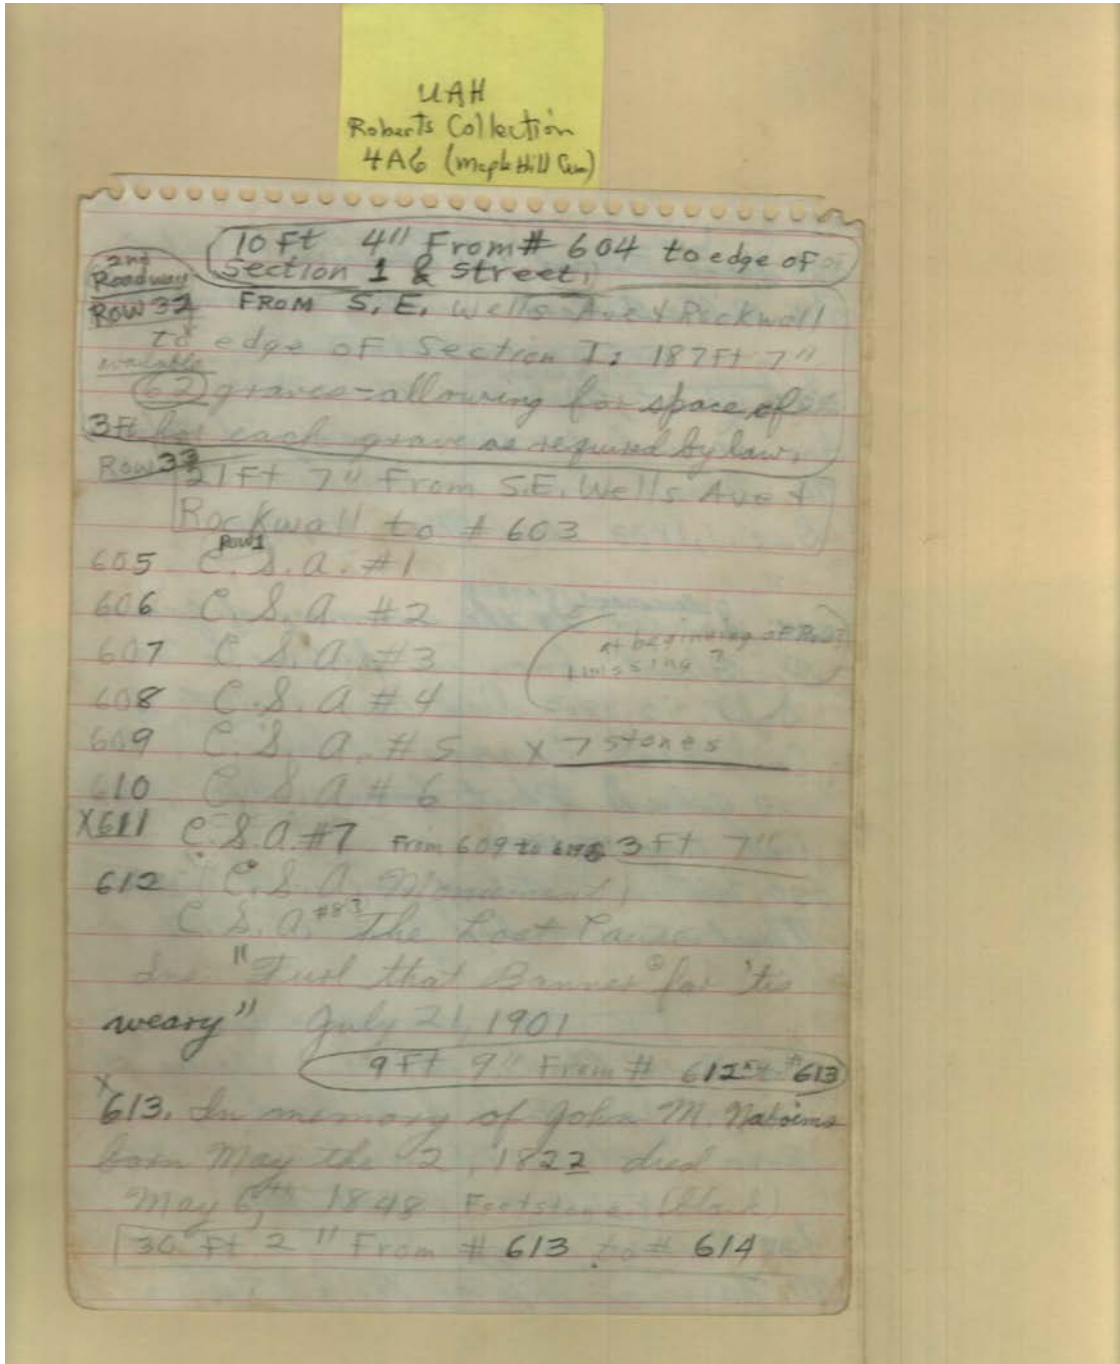 UAH
Roberts Collection
4A6 (Maple Hill Cem)
10 Ft 4" From # 604 to edge of
Section 1 & Street
2nd
Roadway
Row 32 FROM S. E. Wells Ave & Rockwall
to edge of Section I: 187 Ft 7"
available
62 graves - allowing for space of
3 ft for each grave as required by law.
Row 33 21 Ft 7" From S.E. Wells Ave &
Rockwall to # 603
Row 1
605 C. S. A. #1
606 C. S. A #2
at beginning of Row
607 C. S. A. #3
missing ?
608 C. S. A # 4
609 C. S. A. # 5 X 7 stones
610 C. S. A # 6
X611 C. S. A. #7 From 609 to 3 Ft 7"
612 C. S. A. Monument
C. S. A. #83 The Lost Cause
"Furl that Banner for 'tis
weary" July 21, 1901
9 Ft 9" From # 612 to #613
X
613. In memory of John M.
born May the 2, 1822 died
May 6th 1848 Footstone
30 Ft 2" From # 613 to # 614